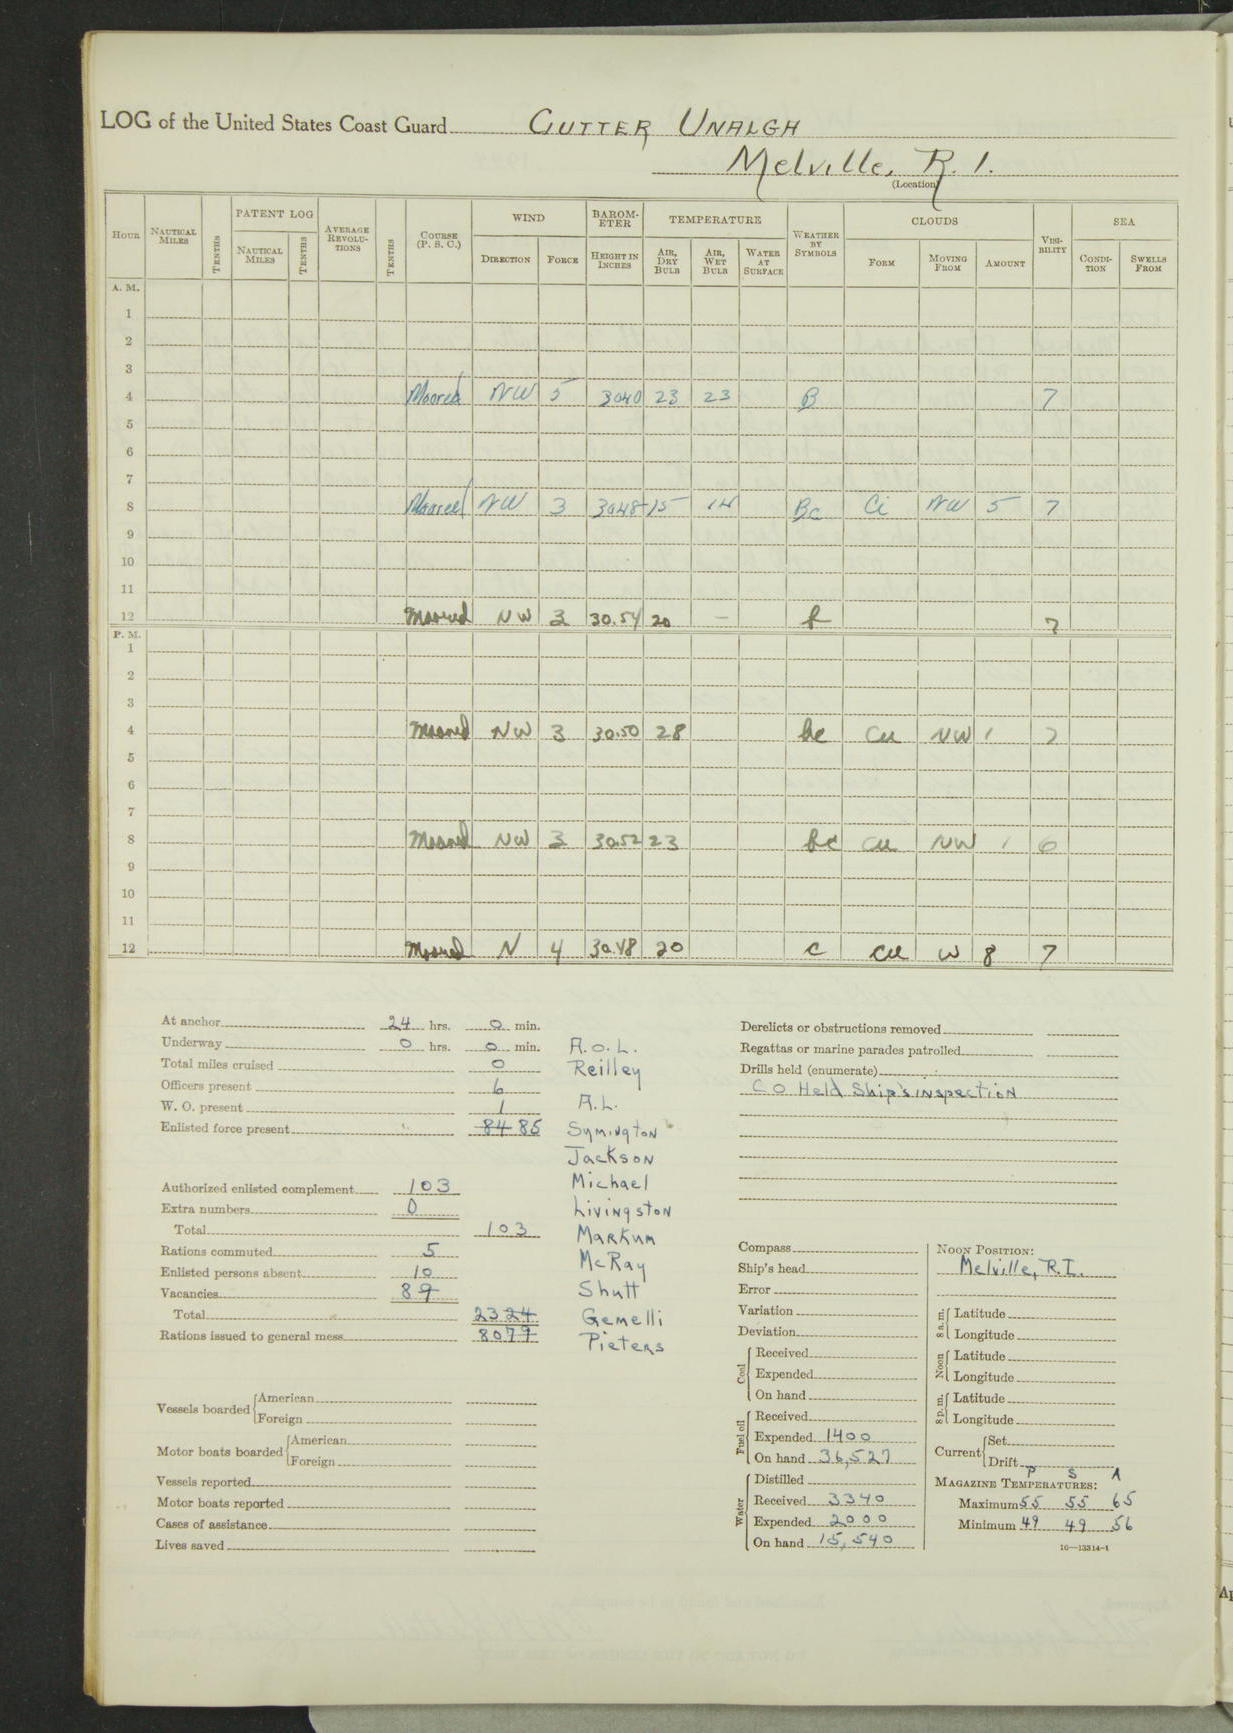 LOG of the United States Coast Guard CUTTER UNALGA
Melville, R. I.
(Location)
HOUR NAUTICAL MILES TENTHS PATENT LOG NAUTICAL MILES TENTHS AVERAGE REVOLUTIONS TENTHS COURSE (P. S. C.) WIND DIRECTION FORCE BAROMETER HEIGHT IN INCHES TEMPERATURE AIR, DRY BULB AIR, WET BULB WATER AT SURFACE WEATHER BY SYMBOLS CLOUDS FORM MOVING FROM AMOUNT VISIBILITY SEA CONDITION SWELLS FROM
A. M.
1
2
3
4 Moored NW 5 3040 23 23 B 7
5
6
7
8 Moored NW 3 3048 15 14 Bc Ci NW 5 7
9
10
11
12 Moored NW 3 30.54 20 — b 7
P. M.
1
2
3
4 Moored NW 3 30.50 28 bc Cu NW 1 7
5
6
7
8 Moored NW 3 30.52 23 bc Cu NW 1 6
9
10
11
12 Moored N 4 30.48 20 c Cu W 8 7
At anchor 24 hrs. 0 min.
Underway 0 hrs. 0 min.
Total miles cruised 0
Officers present 6
W. O. present 1
Enlisted force present 84 85
Authorized enlisted complement 103
Extra numbers 0
Total 103
Rations commuted 5
Enlisted persons absent 10
Vacancies 8 9
Total 23 24
Rations issued to general mess 80 79
A.O.L.
Reilley
A.L.
Symington
Jackson
Michael
Livingston
Markum
McRay
Shutt
Gemelli
Pieters
Vessels boarded American
Foreign
Motor boats boarded American
Foreign
Vessels reported
Motor boats reported
Cases of assistance
Lives saved
Derelicts or obstructions removed
Regattas or marine parades patrolled
Drills held (enumerate)
CO Held Ship's inspection
Compass
Ship's head
Error
Variation
Deviation
Coal Received
Expended
On hand
Fuel oil Received
Expended 1400
On hand 36,527
Water Distilled
Received 3340
Expended 2000
On hand 15,540
NOON POSITION:
Melville, R.I.
8 a. m. Latitude
Longitude
Noon Latitude
Longitude
8 p. m. Latitude
Longitude
Current Set
Drift
P S A
MAGAZINE TEMPERATURES:
Maximum 55 55 65
Minimum 49 49 56
16—13314-1